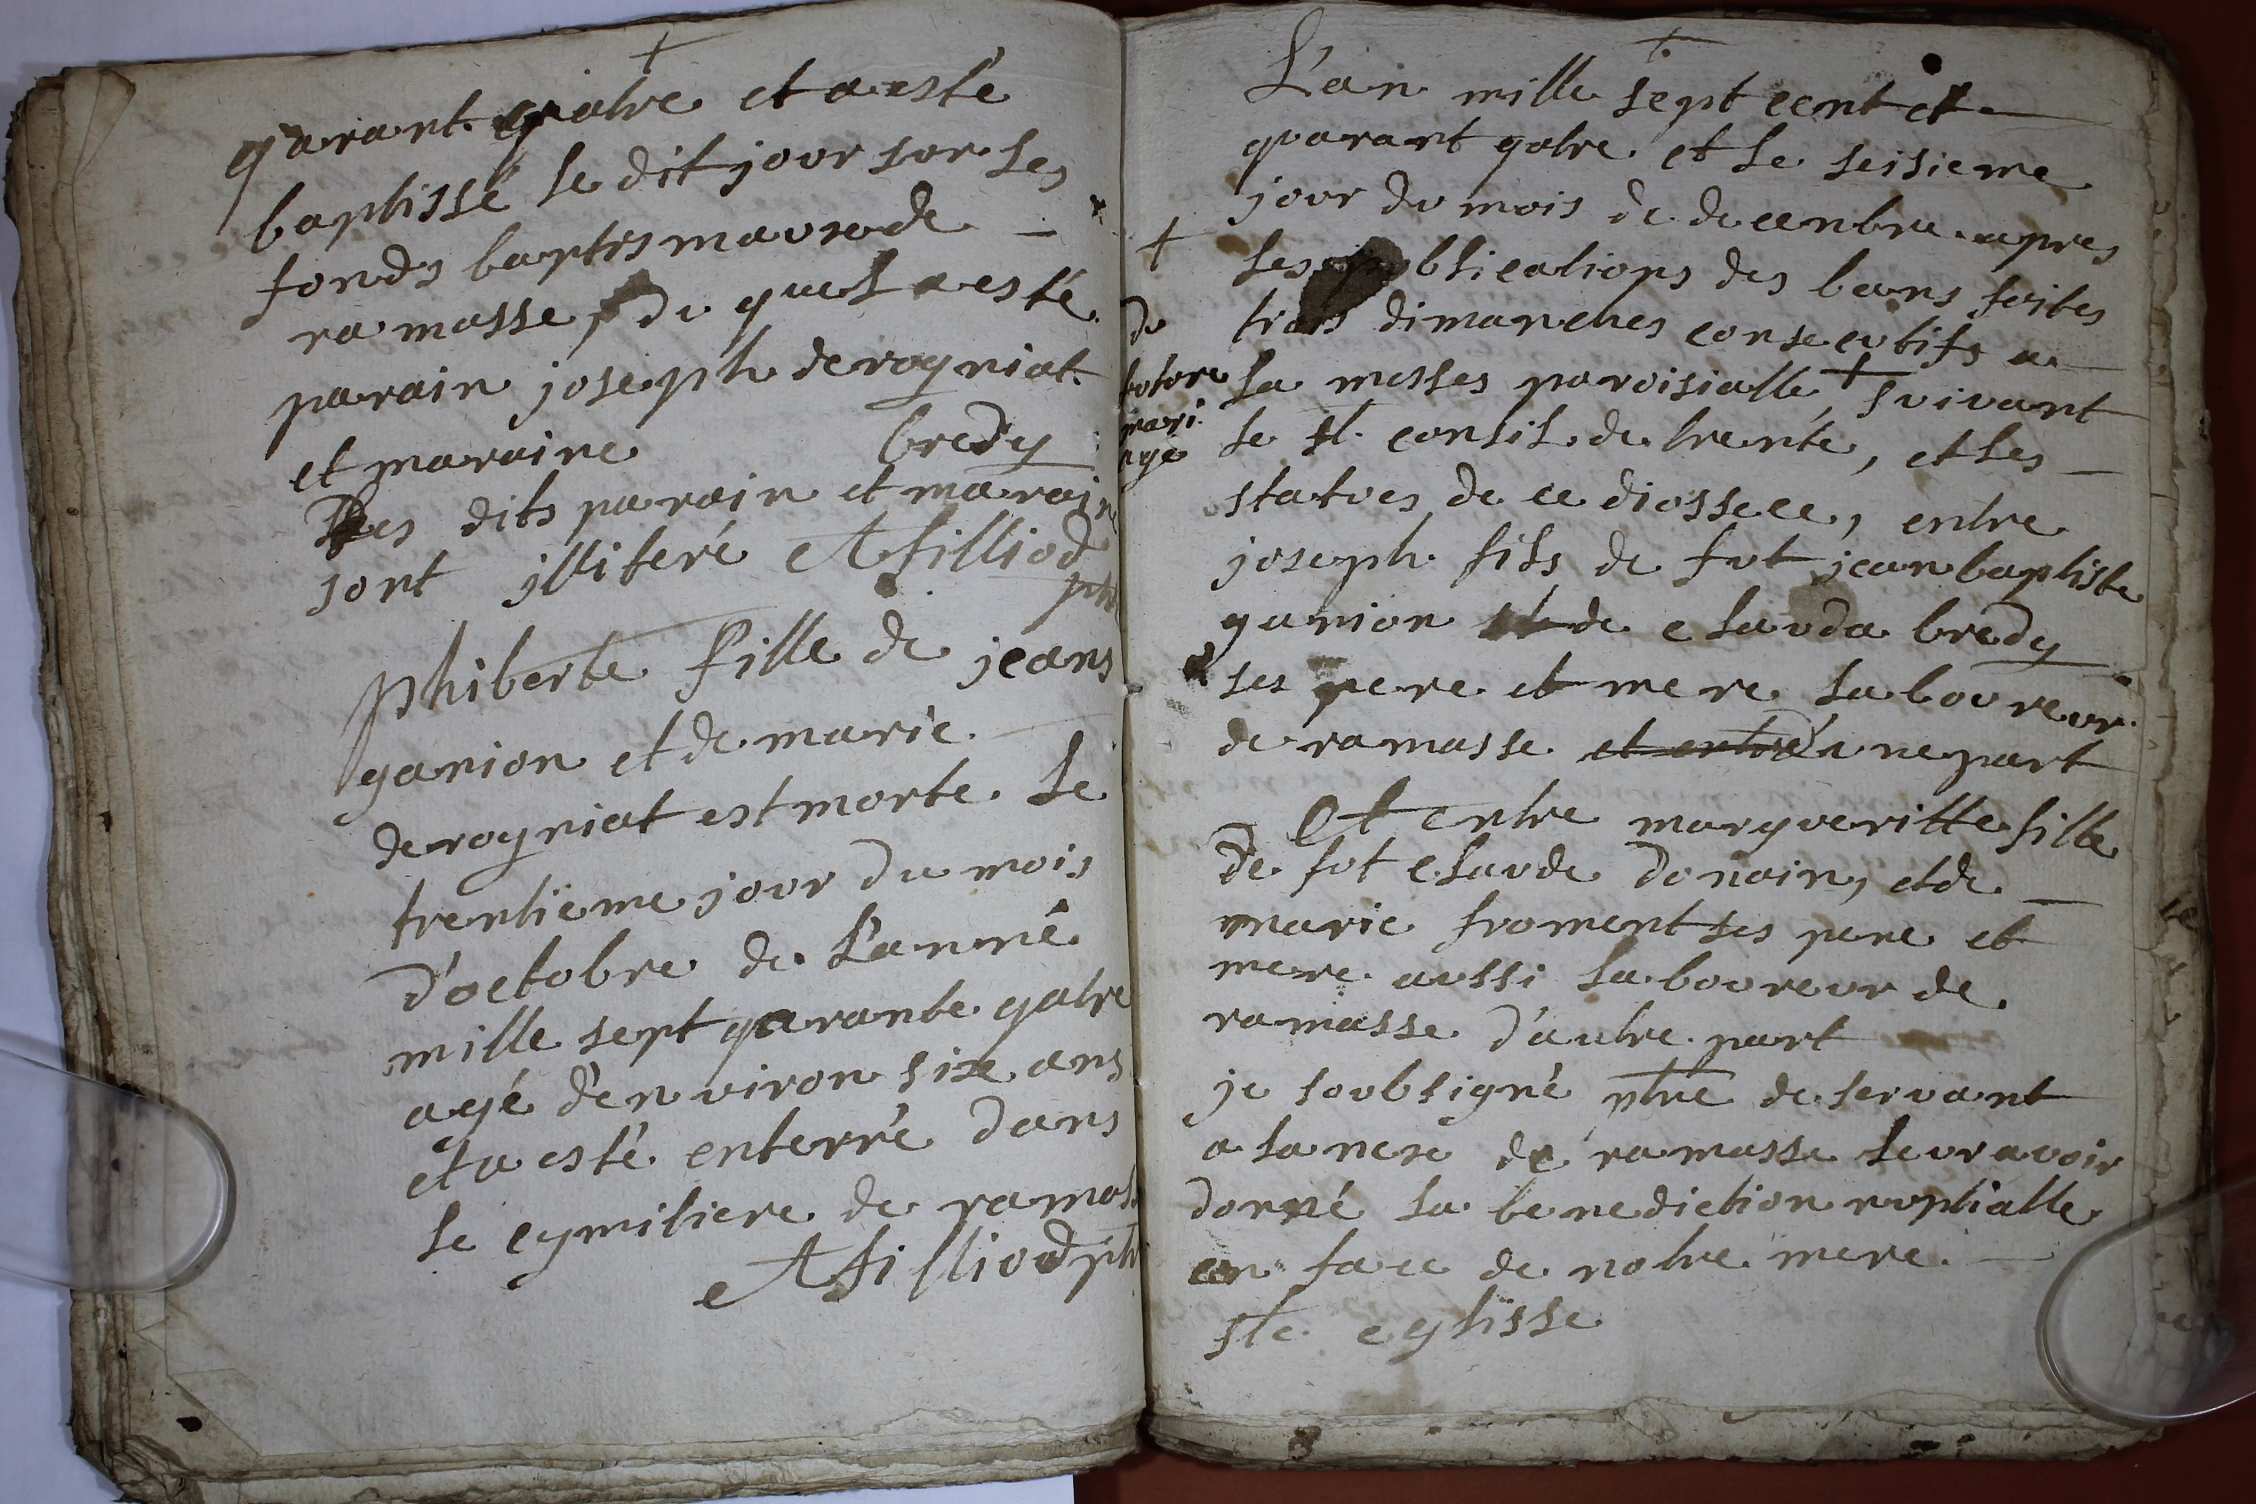 qarant qatre et a esté
baptissé le dit jour sur les
fonds baptismaux de
ramasse, du quel a esté
parain joseph derogniat
et maraine bredy
Les dits parain et maraine
sont jlliteré A filliod
ptre
phiberte fille de jeans
ganion et de marie
derogniat est morte le
trentieme jour du mois
d'octobre de l'anné
mille sept qarante qatre
agé d'environ sixe ans
et a esté enterré dans
le cymitiere de ramass
A filliod ptr
L'an mille sept cent et
quarant qatre et le seisieme
jour du mois de decenbre apres
+ les publications des bans faites
trois dimanches consecutifs a
la messes paroisialle + suivant
du
futore
mari
age
le st. consil de trente, et les
statues de ce diossece, entre
joseph fils de fut jean baptiste
ganion et de clauda bredy
ses pere et mere laboureur
de ramasse et entre d'une part
Et entre margueritte fille
de fut claude donain, et de
marie froment ses pere et
mere aussi laboureur de
ramasse d'autre part
je soubsigné ptre deservant
a la nexe de ramasse leur avoir
donné la benediction nuptialle
en face de notre mere
ste eglisse